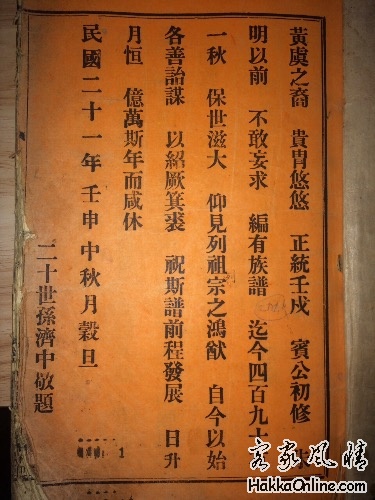 黃虞之裔　貴胄悠悠　正統壬戌　賓公初修
明以前　不敢妄求　編有族譜　迄今四百九十
一秋　保世滋大　仰見列祖宗之鴻猷　自今以始
各善詒謀　以紹厥箕裘　祝斯譜前程發展　日升
月恒　億萬斯年而咸休
民國二十一年壬申中秋月穀旦
二十世孫濟中敬題
1
客家風情
HakkaOnline.com